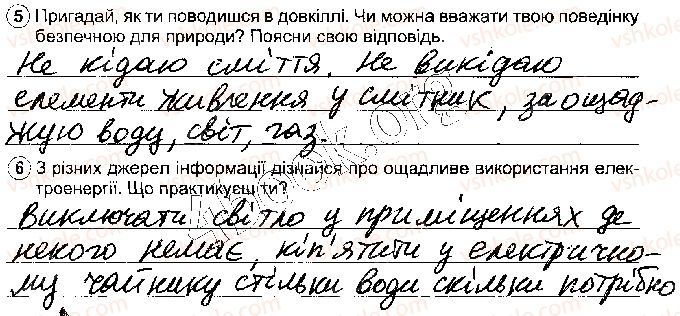 5 Пригадай, як ти поводишся в довкіллі. Чи можна вважати твою поведінку
безпечною для природи? Поясни свою відповідь.
Не кідаю сміття. Не викідаю
елементи живлення у смітник, заощад-
жую воду, світ, газ.
6 З різних джерел інформації дізнайся про ощадливе використання елек-
троенергії. Що практикуєш ти?
Виключати світло у приміщеннях де
некого немає, кіп'ятити у електрично-
му чайнику стільки води скільки потрібно